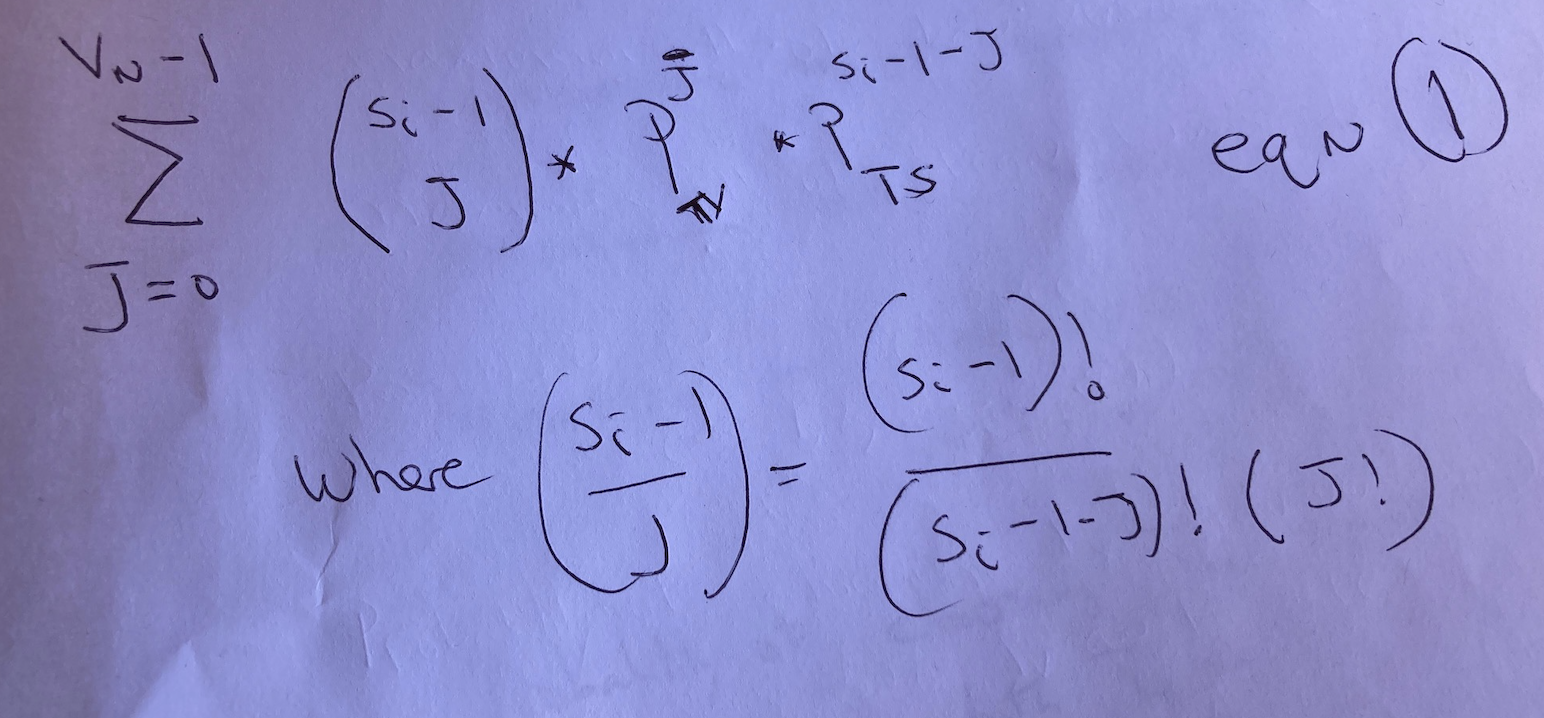 V_N - 1
∑ (S_i - 1 / J) * P_TV^J * P_TS^(S_i - 1 - J) eqN ①
J = 0
where (S_i - 1 / J) = (S_i - 1)! / (S_i - 1 - J)! (J!)